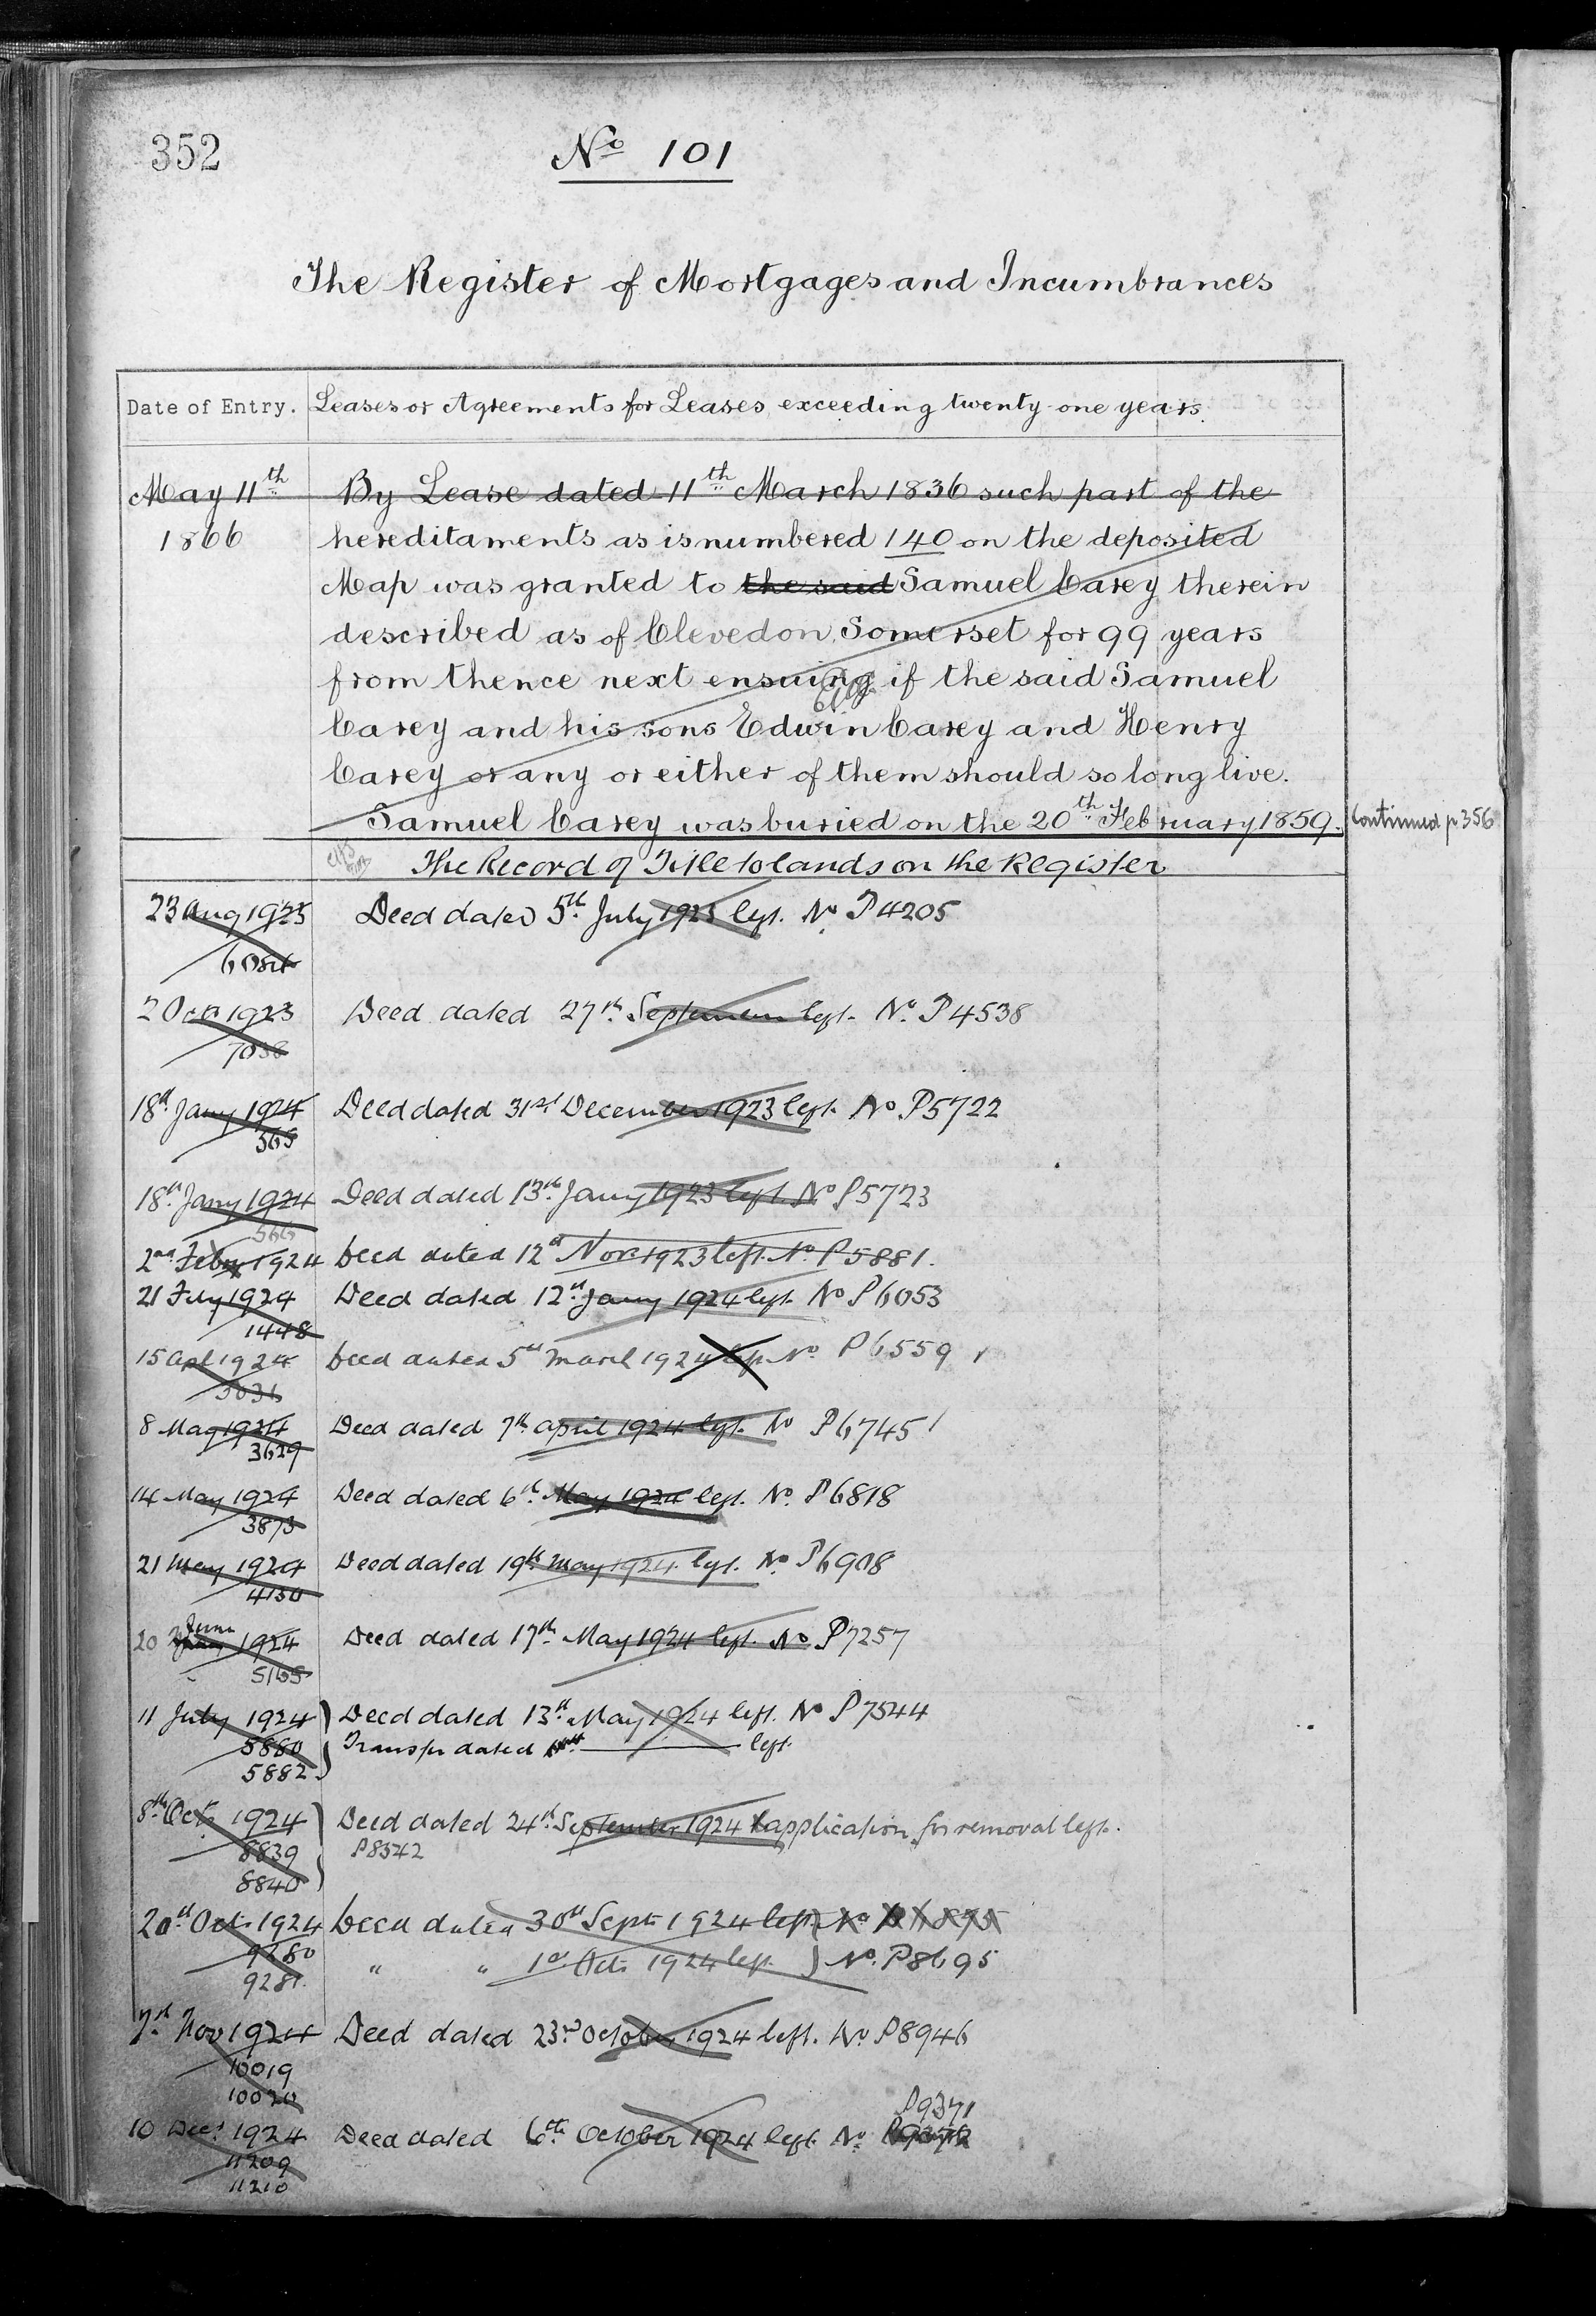 352
No 101
The Register of Mortgages and Incumbrances
Date of Entry. Leases or Agreements for Leases exceeding twenty one years.
May 11th By Lease dated 11th March 1836 such part of the
1866 hereditaments as is numbered 140 on the deposited
Map was granted to the said Samuel Carey therein
described as of Clevedon Somerset for 99 years
from thence next ensuing if the said Samuel
Carey and his sons Edwin Carey and Henry
Carey or any or either of them should so long live.
Samuel Carey was buried on the 20th February 1859. Continued p 356
The Record of Title to lands on the Register
23 Aug 1923 Deed dated 5th July 1923 left. No P4205
6084
2 Oct 1923 Deed dated 27th September left. No. P4538
7038
18th Jany 1924 Deed dated 31st December 1923 left. No. P5722
565
18th Jany 1924 Deed dated 13th Jany 1923 left. No P5723
566
2nd Feby 1924 Deed dated 12th Nov 1923 left. No. P5881.
21 Feby 1924 Deed dated 12th Jany 1924 left. No P6053
1448
15 Apl 1924 Deed dated 5th March 1924 left No. P6559
3031
8 May 1924 Deed dated 7th April 1924 left. No P6745
3629
14 May 1924 Deed dated 6th May 1924 left. No. P6818
3873
21 May 1924 Deed dated 19th May 1924 left. No. P6908
4130
20 June 1924 Deed dated 17th May 1924 left. No P7257
5165
11 July 1924 Deed dated 13th May 1924 left. No P7544
5880 Transfer dated left.
5882
8th Oct. 1924 Deed dated 24th September 1924 & application for removal left.
8839 P8542
8840
20th Oct. 1924 Deed dated 30th Sept. 1924 left
9280 " " 1st Oct. 1924 left. No. P8695
9281
7th Nov 1924 Deed dated 23rd October 1924 left. No. P8946
10019
10020
P9371
10 Decr 1924 Deed dated 6th October 1924 left No.
11209
11210